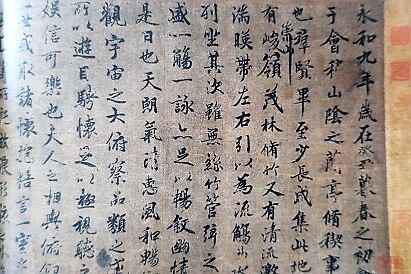 永和九年歲在癸丑暮春之初
于會稽山陰之蘭亭脩禊事
也羣賢畢至少長咸集此地
有崇山峻領茂林脩竹又有清流激
湍暎帶左右引以為流觴曲
列坐其次雖無絲竹管弦之
盛一觴一詠亦足以暢敘幽情
是日也天朗氣清惠風和暢
觀宇宙之大俯察品類之
所以遊目騁懷足以極視聽之
娛信可樂也夫人之相與俯仰
世或取諸懷抱悟言一室之